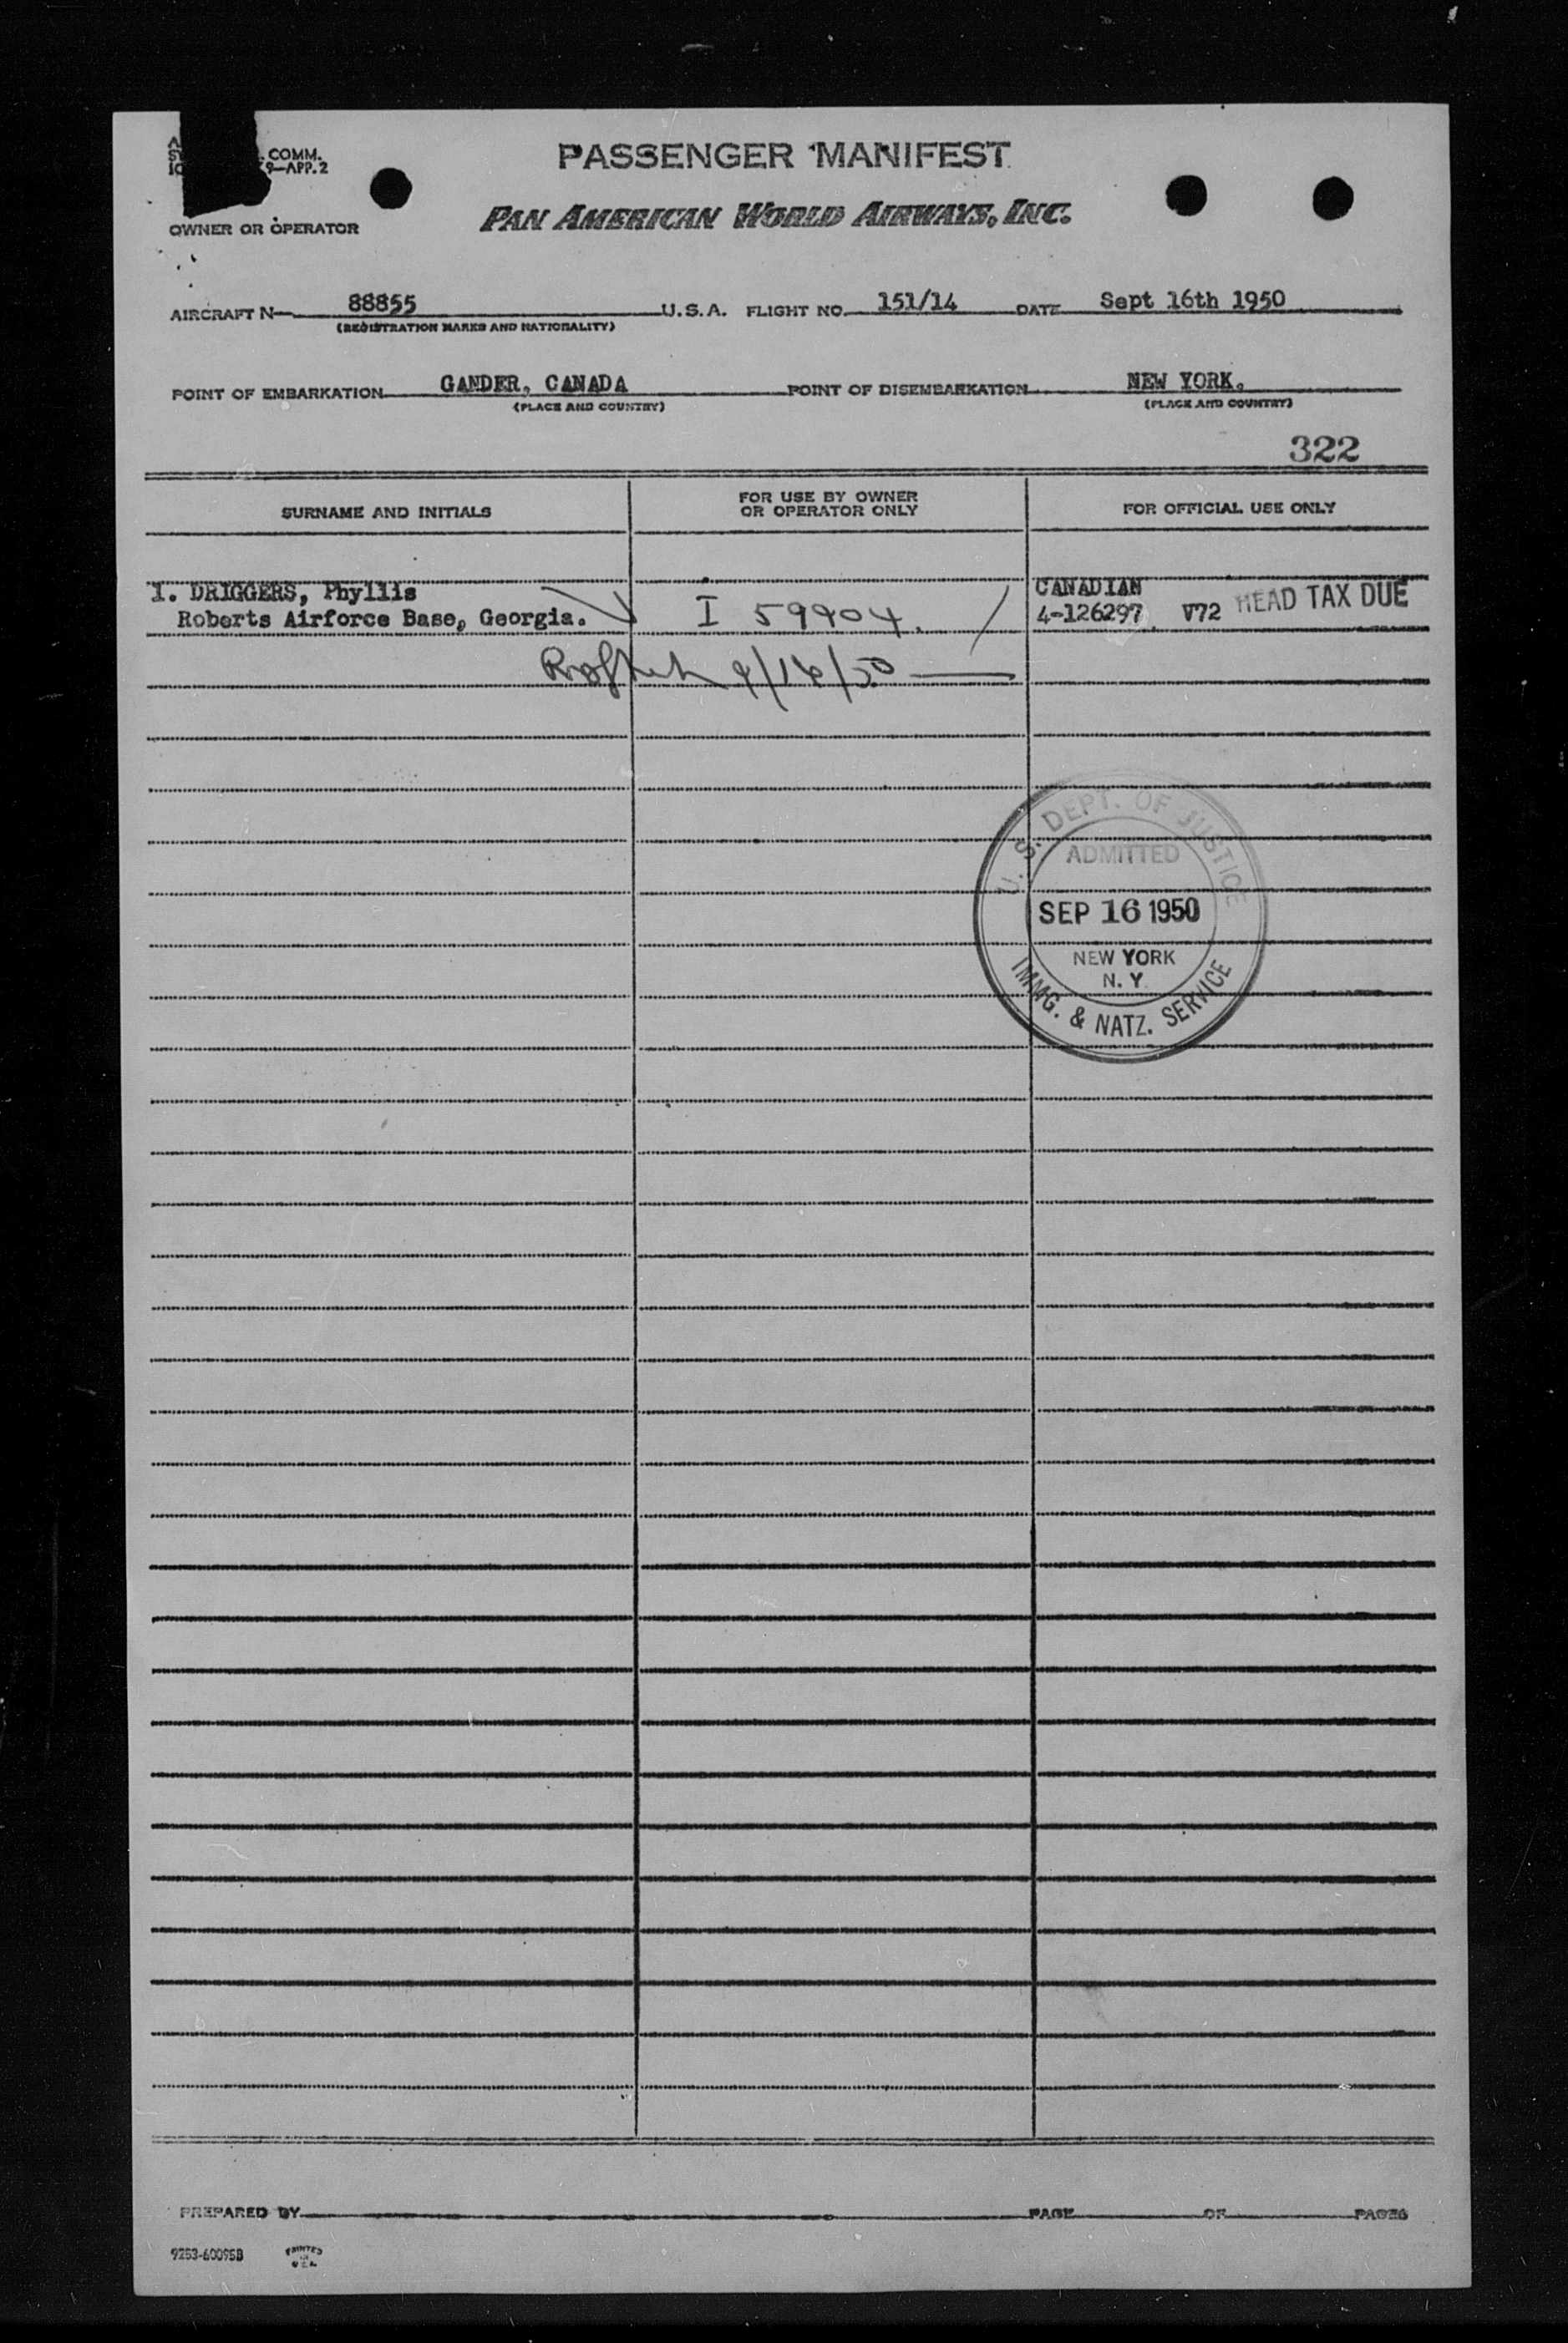 COMM.
9-APP.2
PASSENGER MANIFEST
PAN AMERICAN WORLD AIRWAYS, INC.
OWNER OR OPERATOR
AIRCRAFT N 88855 U.S.A. FLIGHT NO. 151/14 DATE Sept 16th 1950
(REGISTRATION MARKS AND NATIONALITY)
POINT OF EMBARKATION GANDER, CANADA POINT OF DISEMBARKATION NEW YORK.
(PLACE AND COUNTRY) (PLACE AND COUNTRY)
322
SURNAME AND INITIALS FOR USE BY OWNER OR OPERATOR ONLY FOR OFFICIAL USE ONLY
1. DRIGGERS, Phyllis CANADIAN
Roberts Airforce Base, Georgia. I 59904. 4-126297 V72 HEAD TAX DUE
9/16/50
U. S. DEPT. OF JUSTICE
ADMITTED
SEP 16 1950
NEW YORK
N. Y.
IMMG. & NATZ. SERVICE
PREPARED BY PAGE OF PAGES
9253-60095B PRINTED IN U.S.A.